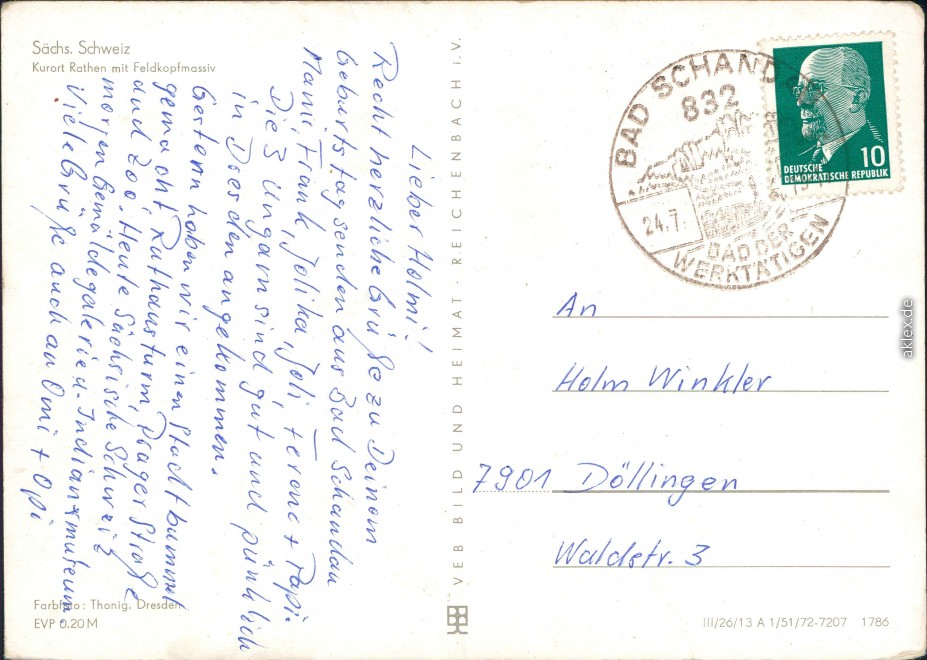 Sächs. Schweiz
Kurort Rathen mit Feldkopfmassiv
Lieber Holmi!
Recht herzliche Grüße zu Deinem
Geburtstag senden aus Bad Schandau
Mami, Frank, Jolika, Joli, Ferenc + Papi.
Die 3 Ungarn sind gut und pünklich
in Dresden angekommen.
Gestern haben wir einen Stadtbummel
gemacht, Rathausturm, Prager Straße
und Zoo. Heute Sächsische Schweiz
morgen Gemäldegalerie u. Indianermuseum.
Viele Grüße auch an Omi + Opi
Farbfoto: Thonig, Dresden
EVP 0.20 M
VEB BILD UND HEIMAT · REICHENBACH I. V.
BAD SCHANDAU
832
24.7.
BAD DER
WERKTÄTIGEN
10
DEUTSCHE
DEMOKRATISCHE REPUBLIK
An
Holm Winkler
7901 Döllingen
Waldstr. 3
III/26/13 A 1/51/72-7207 1786
aklex.de